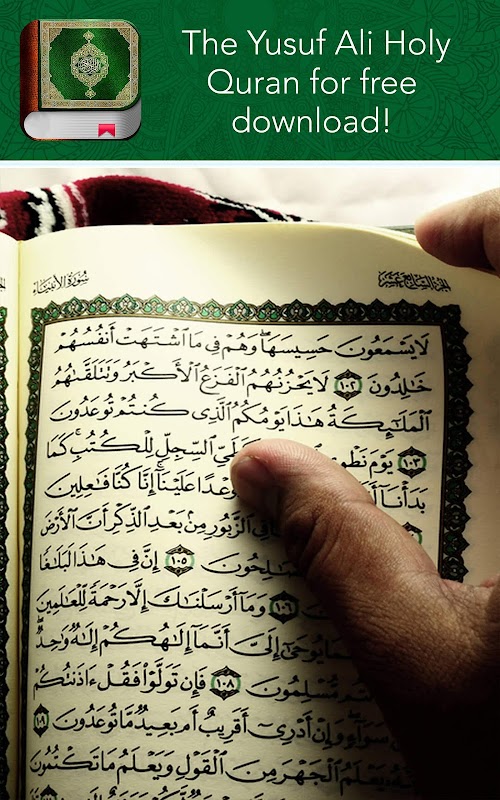 The Yusuf Ali Holy
Quran for free
download!
الجزء السابع عشر
سورة الأنبياء
لَا يَسْمَعُونَ حَسِيسَهَا ۖ وَهُمْ فِي مَا ٱشْتَهَتْ أَنفُسُهُمْ
خَٰلِدُونَ ١٠٢ لَا يَحْزُنُهُمُ ٱلْفَزَعُ ٱلْأَكْبَرُ وَتَتَلَقَّىٰهُمُ
ٱلْمَلَٰٓئِكَةُ هَٰذَا يَوْمُكُمُ ٱلَّذِي كُنتُمْ تُوعَدُونَ
١٠٣ يَوْمَ نَطْوِي ٱلسِّجِلِّ لِلْكُتُبِ ۚ كَمَا
بَدَأْنَآ وَعْدًا عَلَيْنَآ ۚ إِنَّا كُنَّا فَٰعِلِينَ
فِي ٱلزَّبُورِ مِنۢ بَعْدِ ٱلذِّكْرِ أَنَّ ٱلْأَرْضَ
١٠٥ إِنَّ فِي هَٰذَا لَبَلَٰغًا
١٠٦ وَمَآ أَرْسَلْنَٰكَ إِلَّا رَحْمَةً لِّلْعَٰلَمِينَ
يُوحَىٰٓ إِلَيَّ أَنَّمَآ إِلَٰهُكُمْ إِلَٰهٌ وَٰحِدٌ ۖ
مُّسْلِمُونَ ١٠٨ فَإِن تَوَلَّوْا۟ فَقُلْ ءَاذَنتُكُمْ
سَوَآءٍ ۖ وَإِنْ أَدْرِيٓ أَقَرِيبٌ أَم بَعِيدٌ مَّا تُوعَدُونَ ١٠٩
يَعْلَمُ ٱلْجَهْرَ مِنَ ٱلْقَوْلِ وَيَعْلَمُ مَا تَكْتُمُونَ